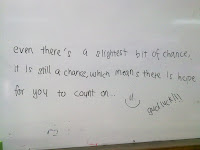 even there's a slightest bit of chance,
it is still a chance, which means there is hope
for you to count on...
good luck!!!